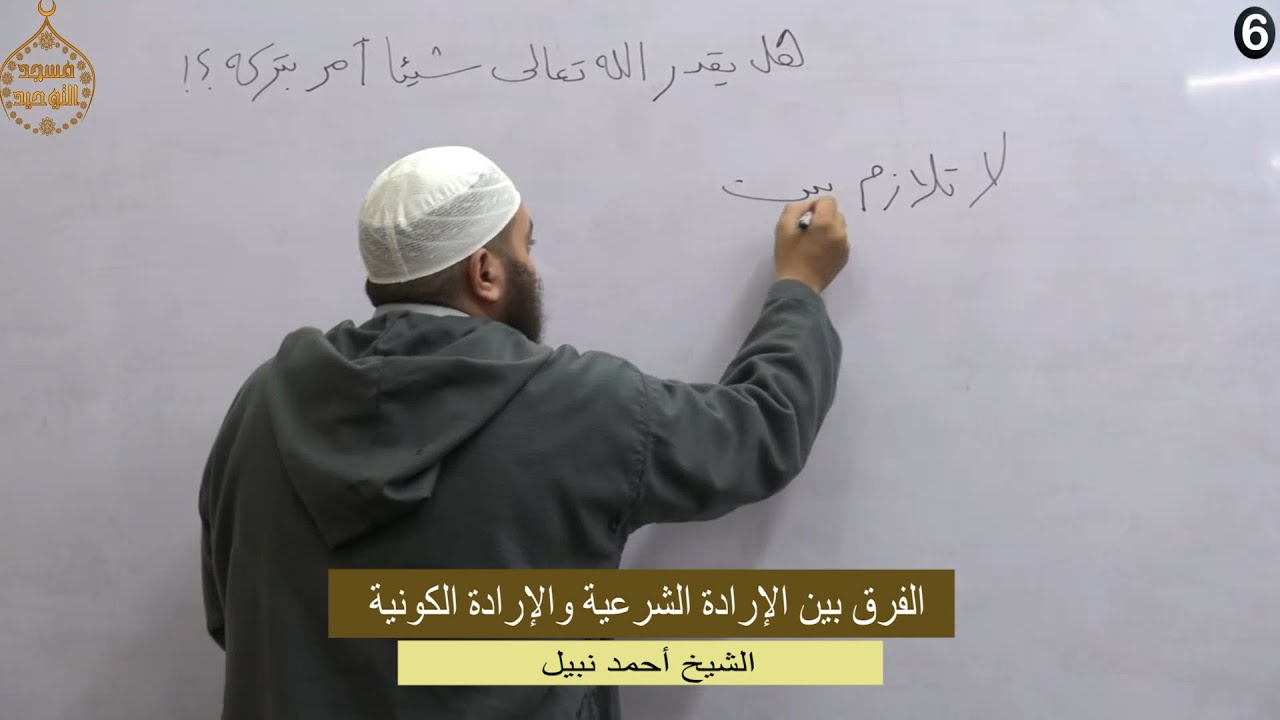 6
مسجد
التوحيد
هل يقدر الله تعالى شيئا أمر بتركه ؟!
لا تلازم بين
الفرق بين الإرادة الشرعية والإرادة الكونية
الشيخ أحمد نبيل